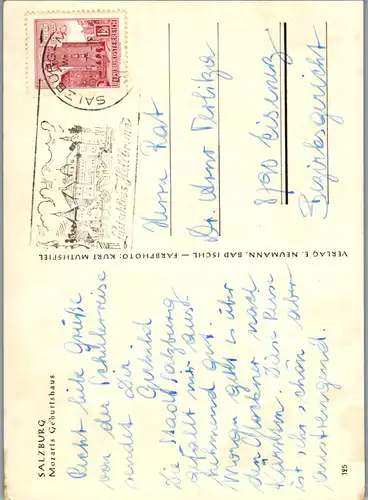 SALZBURG
Mozarts Geburtshaus
Recht liebe Grüße
von der Schülerreise
sendet Dir
Gerhild
Die Stadt Salzburg
gefällt mir aus-
nehmend gut.
Morgen geht es über
den Glockner nach
Kärnten. Die Reise
ist sehr schön aber
anstrengend.
125
VERLAG E. NEUMANN, BAD ISCHL — FARBPHOTO: KURT MUTHSPIEL
SALZBURG
REPUBLIK ÖSTERREICH
Herrn Rat
Dr. Arno
8790 Eisenerz
Bezirksgericht